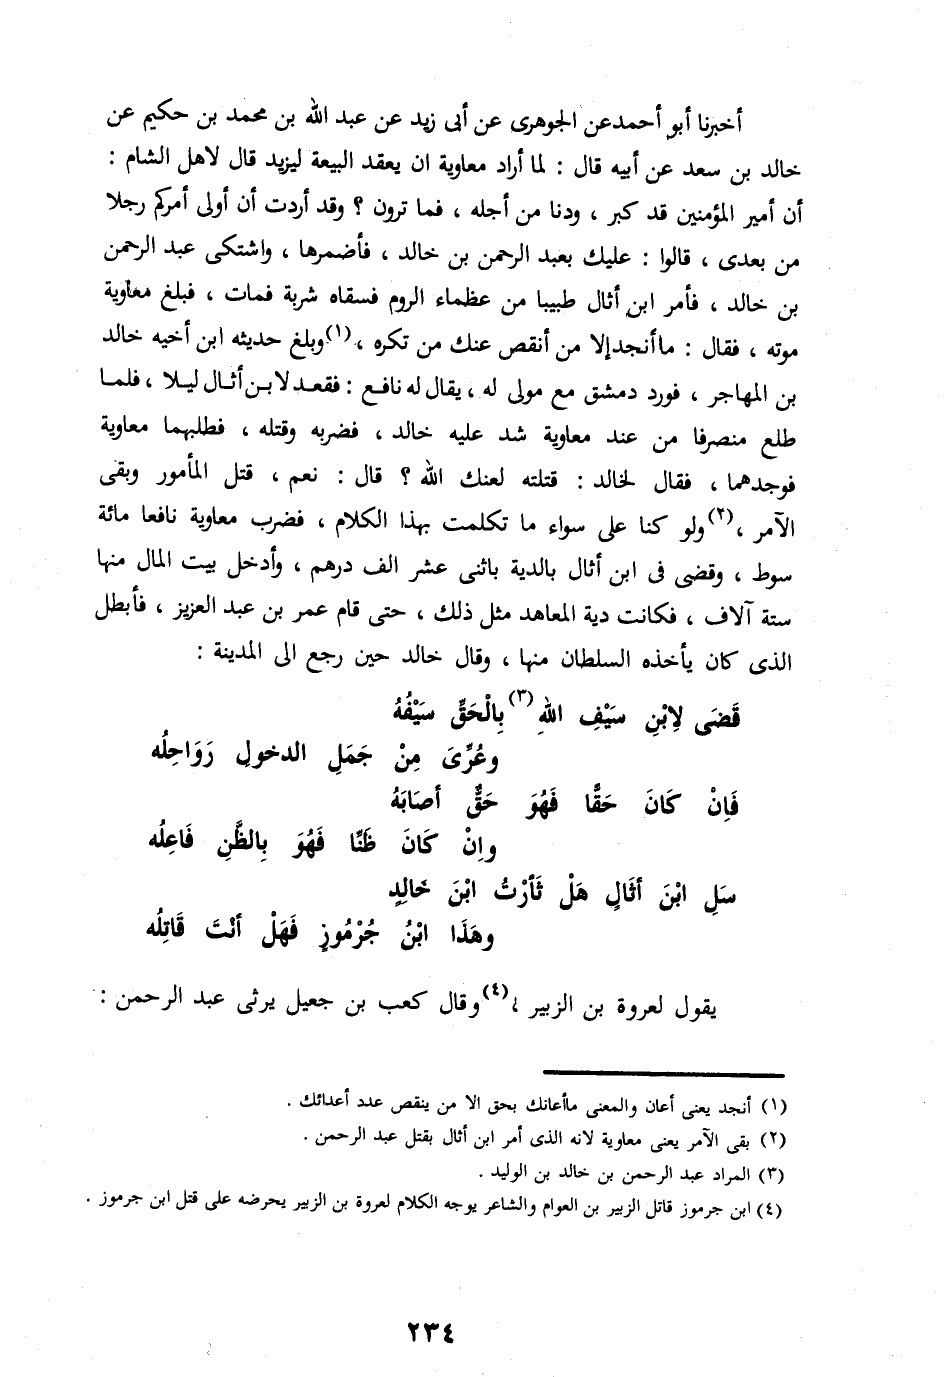 أخبرنا أبو أحمد عن الجوهرى عن أبى زيد عن عبد الله بن محمد بن حكيم عن
خالد بن سعد عن أبيه قال : لما أراد معاوية ان يعقد البيعة ليزيد قال لاهل الشام :
أن أمير المؤمنين قد كبر ، ودنا من أجله ، فما ترون ؟ وقد أردت أن أولى أمركم رجلا
من بعدى ، قالوا : عليك بعبد الرحمن بن خالد ، فأضمرها ، واشتكى عبد الرحمن
بن خالد ، فأمر ابن أثال طبيبا من عظماء الروم فسقاه شربة فمات ، فبلغ معاوية
موته ، فقال : ما أنجد إلا من أنقص عنك من تكره ،(١) وبلغ حديثه ابن أخيه خالد
بن المهاجر ، فورد دمشق مع مولى له ، يقال له نافع : فقعد لابن أثال ليلا ، فلما
طلع منصرفا من عند معاوية شد عليه خالد ، فضربه وقتله ، فطلبهما معاوية
فوجدهما ، فقال لخالد : قتلته لعنك الله ؟ قال : نعم ، قتل المأمور وبقى
الآمر ،(٢) ولو كنا على سواء ما تكلمت بهذا الكلام ، فضرب معاوية نافعا مائة
سوط ، وقضى فى ابن أثال بالدية باثنى عشر الف درهم ، وأدخل بيت المال منها
ستة آلاف ، فكانت دية المعاهد مثل ذلك ، حتى قام عمر بن عبد العزيز ، فأبطل
الذى كان يأخذه السلطان منها ، وقال خالد حين رجع الى المدينة :
قَضَى لِابْنِ سَيْفِ اللهِ(٣) بِالْحَقِّ سَيْفُهُ
وعُرِّىَ مِنْ جَمَلِ الدخولِ رَوَاحِلُه
فَإنْ كَانَ حَقًّا فَهُوَ حَقٌّ أصَابَهُ
وإنْ كَانَ ظَنًّا فَهُوَ بِالظَّنِ فَاعِلُه
سَلِ ابْنَ أثَالٍ هَلْ ثَأرْتُ ابْنَ خَالِدٍ
وهَذَا ابْنُ جُرْمُوزٍ فَهَلْ أنْتَ قَاتِلُه
يقول لعروة بن الزبير ،(٤) وقال كعب بن جعيل يرثى عبد الرحمن :
(١) أنجد يعنى أعان والمعنى ماأعانك بحق الا من ينقص عدد أعدائك .
(٢) بقى الآمر يعنى معاوية لانه الذى أمر ابن أثال بقتل عبد الرحمن .
(٣) المراد عبد الرحمن بن خالد بن الوليد .
(٤) ابن جرموز قاتل الزبير بن العوام والشاعر يوجه الكلام لعروة بن الزبير يحرضه على قتل ابن جرموز .
٢٣٤